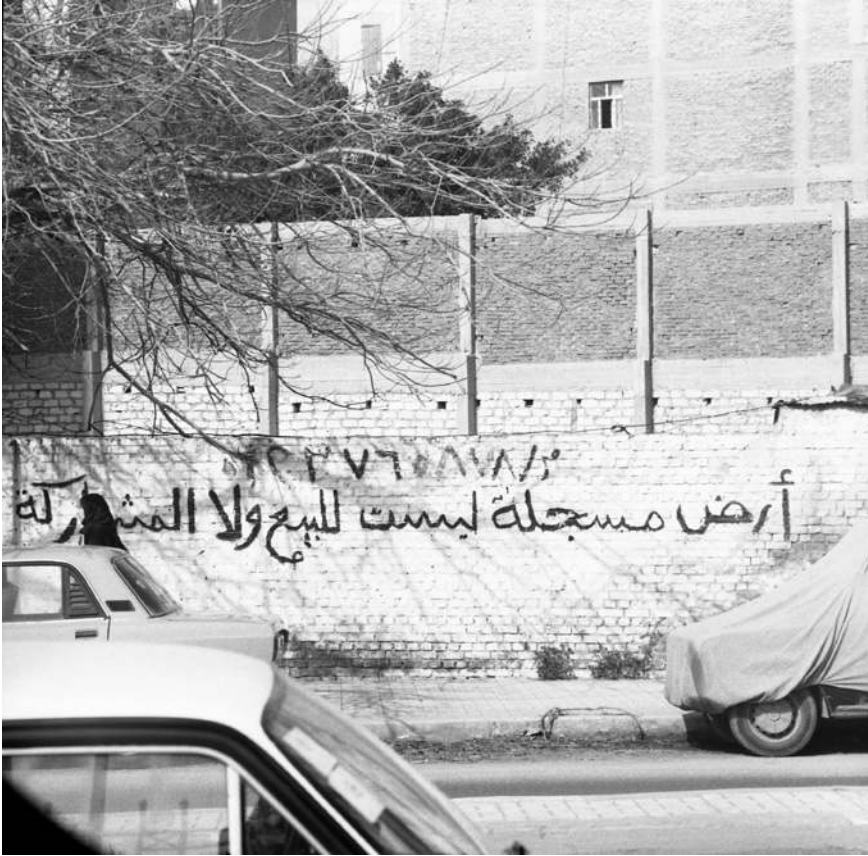 أرض مسجلة ليست للبيع ولا المشاركة